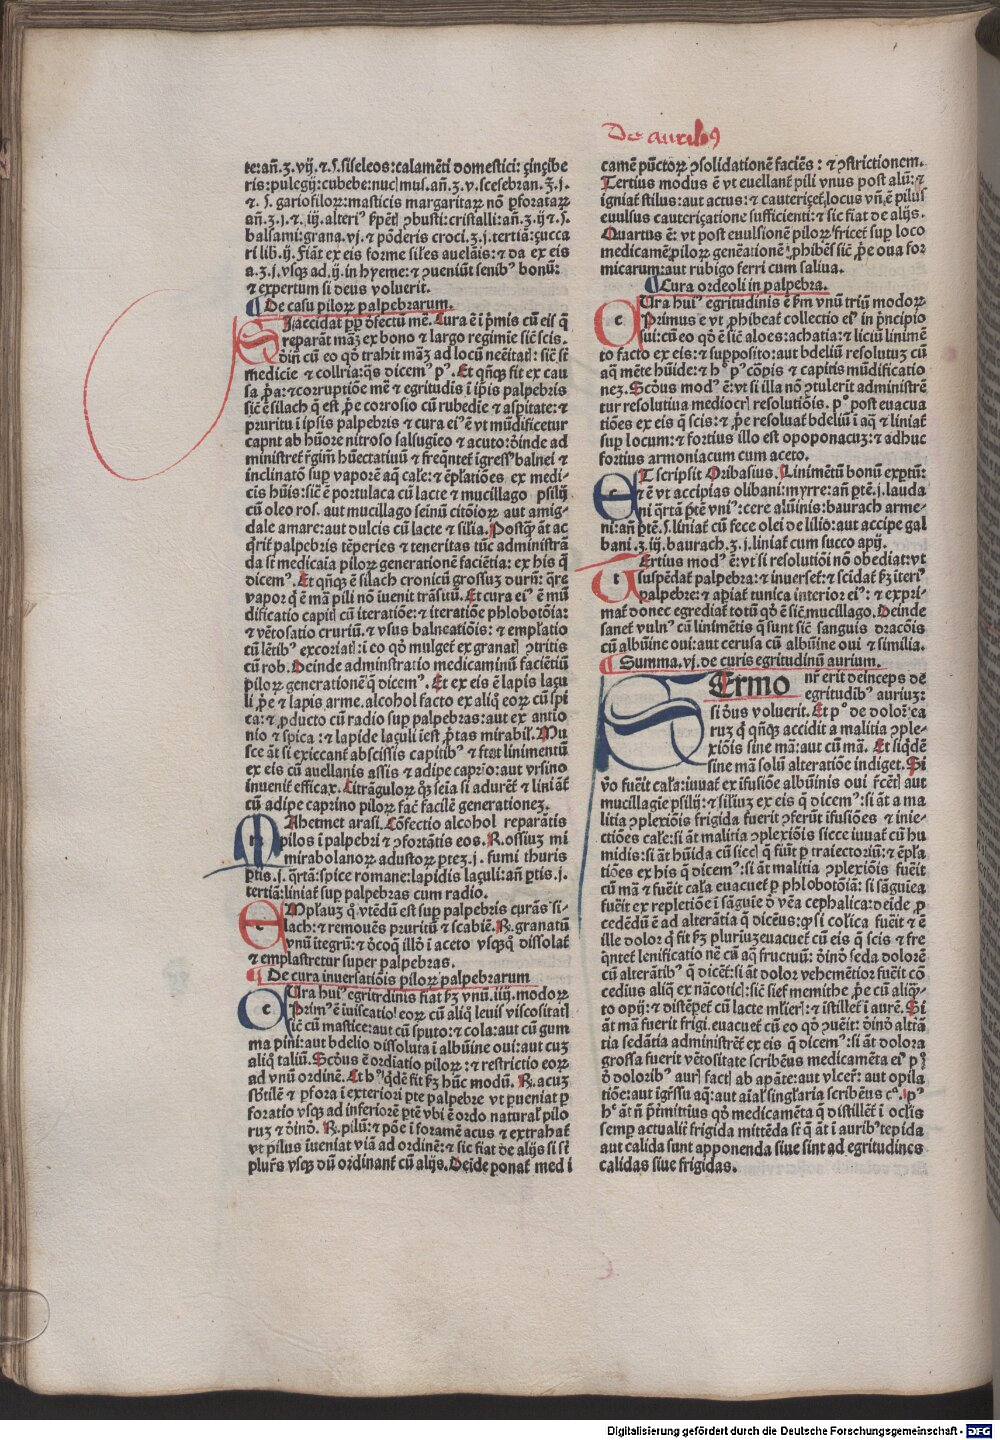 De auribꝰ
te:an̄.ʒ.vij.⁊.ſ.ſiſeleos:calamēti domeſtici:
ris:pulegij:cubebe:nuc muſ.an̄.ʒ.v.
⁊.ſ.gariofiloꝝ:maſticis margaritaꝝ nō ꝑforataꝝ
an̄.ʒ.j.⁊.iij.alteriꝰ criſtalli:an̄.ʒ.ij.⁊.ſ.
balſami:grana.vj.⁊ pōderis croci.ʒ.j.tertiā:çucca
ri lib.ij.Fiāt ex eis forme ſiles auelāis:⁊ da ex eis
a.ʒ.j.vſqꝫ ad.ij.in hyeme:⁊ ꝓueniūt ſenibꝰ bonū:
⁊ expertum ſi deus voluerit.
De caſu piloꝝ palpebrarum.
SI accidat ꝓp̄ defectū mē. Cura ē ī p̄mis cū eis q̄
reparāt māʒ ex bono ⁊ largo regimīe ſic̄ ſcis.
cū eo qd̓ trahit māʒ ad locū
medicīe ⁊ collria: dicemꝰ pꝰ. Et qn̄qꝫ fit ex cau
ſa p̄a:⁊ corruptiōe mē ⁊ egritudīs ī ip̄is palpebris
ſic̄ ē ſilach q̄ eſt p̄e corroſio cū rubedīe ⁊ aſpitate:⁊
pruritu ī ipſis palpebris ⁊ cura eiꝰ ē vt mūdificetur
caput ab hūore nitroſo ſalſugīeo ⁊ acuto:
miniſtret̄ rḡim̄ hūectatiuū ⁊ freq̄ntet̄ īgreſſꝰ balnei ⁊
inclinatō ſuꝑ vaporē aq̄ cale:⁊ ēplatiōes ex medi
cīs hūis:ſic̄ ē portulaca cū lacte ⁊ mucillago pſilij
cū oleo roſ. aut mucillago ſeinū citōioꝝ aut amig-
dale amare:aut dulcis cū lacte ⁊ ſilia. Poſtqꝫ āt ac
palpebris tēperies ⁊ teneritas tūc adminiſtrā
da ſt̄ medicaīa piloꝝ generationē faciētia: ex his q̄
dicemꝰ. Et qn̄qꝫ ē ſilach cronicū groſſuʒ durū:
vapor q̄ ē mā pili nō īuenit trāſitū. Et cura eiꝰ ē mū
dificatio capit cū iteratiōe:⁊ iteratiōe phlobotōia:
⁊ vētoſatio cruriū.⁊ vſus balneatiōis:⁊ emplatio
cū ī eo qd̓ mulget̄ ex granat
cū rob. Deinde adminſtratio medicaminū faciētiū
piloꝝ generationē q̄ dicemꝰ. Et ex eis ē lapis laçu
li p̄e ⁊ lapis arme.alcohol facto ex aliq̄ eoꝝ cū ſpi
ca:⁊ ꝓducto cū radio ſuꝑ palpebras:aut ex antio
nio ⁊ ſpica:⁊ lapide laçuli mirabil̓. Mu
ſce āt ſi exiccant̄ abſciſſis capitibꝰ ⁊ linimentū
ex eis cū auellanis aſſis ⁊ adipe caprīo:aut vrſino
inuenit̄ efficax. Litrāguloꝝ ſi adurēt̄ ⁊ liniāt̄
cū adipe caprino piloꝝ fac̄ facilē generationeʒ.
MAhetmet araſi. Cōfectio alcohol reparātis
pilos ī palpebri ⁊ ꝯfortātis eos.℞.oſſiuʒ mi
mirabolanoꝝ aduſtoꝝ pteʒ.j.fumi thuris
ꝑtis.j.q̄rtā:ſpice romane:lapidis laçuli:an̄ ꝑtis.j.
tertiā:liniat̄ ſuꝑ palpebras cum radio.
EMplauʒ q̄ vtēdū eſt ſuꝑ palpebris curās ſi-
lach:⁊ remouēs pruritū ⁊ ſcabiē.℞.granatū
vnū itegrū:⁊ decoq̄ illd̓ ī aceto vſqꝫq̄ diſſolat̄
⁊ emplaſtretur ſuper palpebras.
De cura inuerſatiōis piloꝝ palpebrarum
CUra huiꝰ egritrdinis fiat ẜʒ vnū.iiij.modoꝝ
Primꝰ ē īuiſcatio eoꝝ cū aliq̄ leuis viſcoſitat
ſic̄ cū maſtice:aut cū ſputo:⁊ cola:aut cū gum
ma pini:aut bdelio diſſoluta ī albūine oui:aut cuʒ
aliq̄ taliū. Scd̓us ē ordiatio piloꝝ:⁊ reſtrictio eoꝝ
ad vnū ordinē. Et hꝰ qdē fit ẜʒ hūc modū.℞.acuʒ
ſb̓tilē ⁊ ꝑfora ī exteriori ꝑte palpebre vt ꝓueniat ꝑ
foratio vſqꝫ ad inferiorē ꝑtē vbi ē ordo natural̓ pilo
ruʒ ⁊ ℞.pilū:⁊ pōe ī foramē acus ⁊ extrahat̄
vt pilus īueniat viā ad ordinē:⁊ ſic fiat de alijs ſi ſt̄
plur̄s vſqꝫ dū ordinant̄ cū alijs. Deīde ponat̄ med i
camē pūctoꝝ ꝯſolidationē faciēs:⁊ ꝯſtrictionem.
Tertius modus ē vt euellant̄ pili vnus poſt aliū:⁊
igniat̄ ſtilus:aut actus:⁊ cauteriçet̄ locus vn̄ ē pilus
euulſus cauteriçatione ſufficienti:⁊ ſic fiat de alijs.
Quartus ē: vt poſt euulſionē piloꝝ fricet̄ ſuꝑ loco
medicamē piloꝝ genēationē ꝓhibēs ſic̄ p̄e oua for
micarum:aut rubigo ferri cum ſaliua.
Cura ordeoli in palpebra.
CUra huiꝰ egritudinis ē ẜm vnū triū modoꝝ
Primus e vt ꝓhibeat̄ collectio eiꝰ in p̄ncipio
ſui:cū eo qd̓ ē ſic̄ aloes:achatia:⁊ liciū linimē
to facto ex eis:⁊ ſuppoſito:aut bdeliū reſolutuʒ cū
aq̄ mēte hūide:⁊ pꝰ cōpōis ⁊ capitis mūdificatio
neʒ. Scd̓us modꝰ ē:vt ſi illa nō ꝯtulerit adminiſtrē
tur reſolutiua mediocr reſolutiōis. pꝰ poſt euacua
tiōes ex eis q̄ ſcis:⁊ p̄e reſoluat̄ bdeliū ī aq̄ ⁊ liniat̄
ſuꝑ locum:⁊ fortius illo eſt opoponacuʒ:⁊ adhuc
fortius armoniacum cum aceto.
ET ſcripſit Oribaſius. Linimētū bonū exꝑtū:
⁊ ē vt accipias olibani:myrre:an̄ ꝑtē.j.lauda
ni q̄rtā ꝑtē vniꝰ:cere alūinis:baurach arme-
ni:an̄ ꝑtē.ſ.liniat̄ cū fece olei de lilio:aut accipe gal
bani.ʒ.iij.baurach.ʒ.j.liniat̄ cum ſucco apij.
TErtius modꝰ ē:vt ſi reſolutiōi nō obediat:vt
ſuſpēdat̄ palpebra:⁊ inuerſet̄:⁊ ſcidat̄ ẜʒ iteriꝰ
palpebre:⁊ aꝑiat̄ tunica interior eiꝰ:⁊ expri-
mat̄ donec egrediat̄ totū qd̓ ē ſic̄ mucillago. Deinde
ſanet̄ vulnꝰ cū linimētis q̄ ſunt ſic̄ ſanguis dracōis
cū albūine oui:aut ceruſa cū albūine oui ⁊ ſimilia.
Summa.vj.de curis egritudinū aurium.
SErmo nr̄ erit deinceps de
egritudibꝰ auriuʒ:
ſi de̓us voluerit. Et pꝰ de dolor̄ ea
ruʒ q̄ qn̄qꝫ accidit a malitia ꝯple-
xiōis ſine mā:aut cū mā. Et ſiqdē
ſine mā ſolū alteratiōe indiget. Si
v̓o fuēit cal̓a:iuuat̄ ex ifuſiōe albūinis oui aut
mucillagīe pſilij:⁊ ſiliuʒ ex eis q̄ dicemꝰ:ſi āt a ma
litia ꝯplexiōis frigida fuerit ꝯferūt ifuſiōes ⁊ inie-
ctiōes cal̓e:ſi āt malitia ꝯplexiōis ſicce iuuat̄ cū hu
midis:ſi āt hūida cū ſicc q̄ fuīt̄ ꝑ traiectoriū:⁊ ēpl̄a
tiōes ex his q̄ dicemꝰ:ſi āt malitia ꝯplexiōis fuēit
cū mā ⁊ fuēit cal̓a euacuet̄ ꝑ phlobotōiā:ſi ſāguīea
fuēit ex repletiōe ī ſāguīe d̓ vēa cephalica:deīde ꝓ
cedēdū ē ad alterātia q̄ dicēus:ꝙ ſi col̓ica fuēit ⁊ ē
ille dolor q̄ fit ẜʒ pluriuʒ euacuet̄ cū eis q̄ ſcis ⁊ fre
q̄ntet̄ lenificatio nē cū aq̄ fructuū: ſeda dolorē
cū alterātibꝰ q̄ dicēt̄:ſi āt dolor vehemētior fuēit cō
cedius aliq̄ ex nācotic:ſic̄ ſief memithe p̄e cū aliq̄-
to opij:⁊ diſtēpet̄ cū lacte ml̓ier:⁊ iſtillet̄ ī aurē. Si
āt mā fuerit frigi.euacuet̄ cū eo qd̓ ꝯuēit: altā
tia ſedātia adminiſtrēt̄ ex eis q̄ dicemꝰ:ſi āt dolora
groſſa fuerit vētoſitate ſcribēus medicamēta eiꝰ
d̓ doloribꝰ aur fact ab apāte:aut vlcer̄:aut opila
tiōe:aut īgreſſu aq̄:aut aīal̓ ſingl̓aria ſcribēus cꝰ.
āt n̄ p̄mittiꝰ qd̓ medicamēta q̄ diſtillēt̄ ī ocl̓is
ſemꝑ actualiꝰ frigida mittēda ſt̄ q̄ āt ī auribꝰ tepida
aut calida ſunt apponenda ſiue ſint ad egritudines
calidas ſiue frigidas.
Digitalisierung gefördert durch die Deutsche Forschungsgemeinschaft - DFG